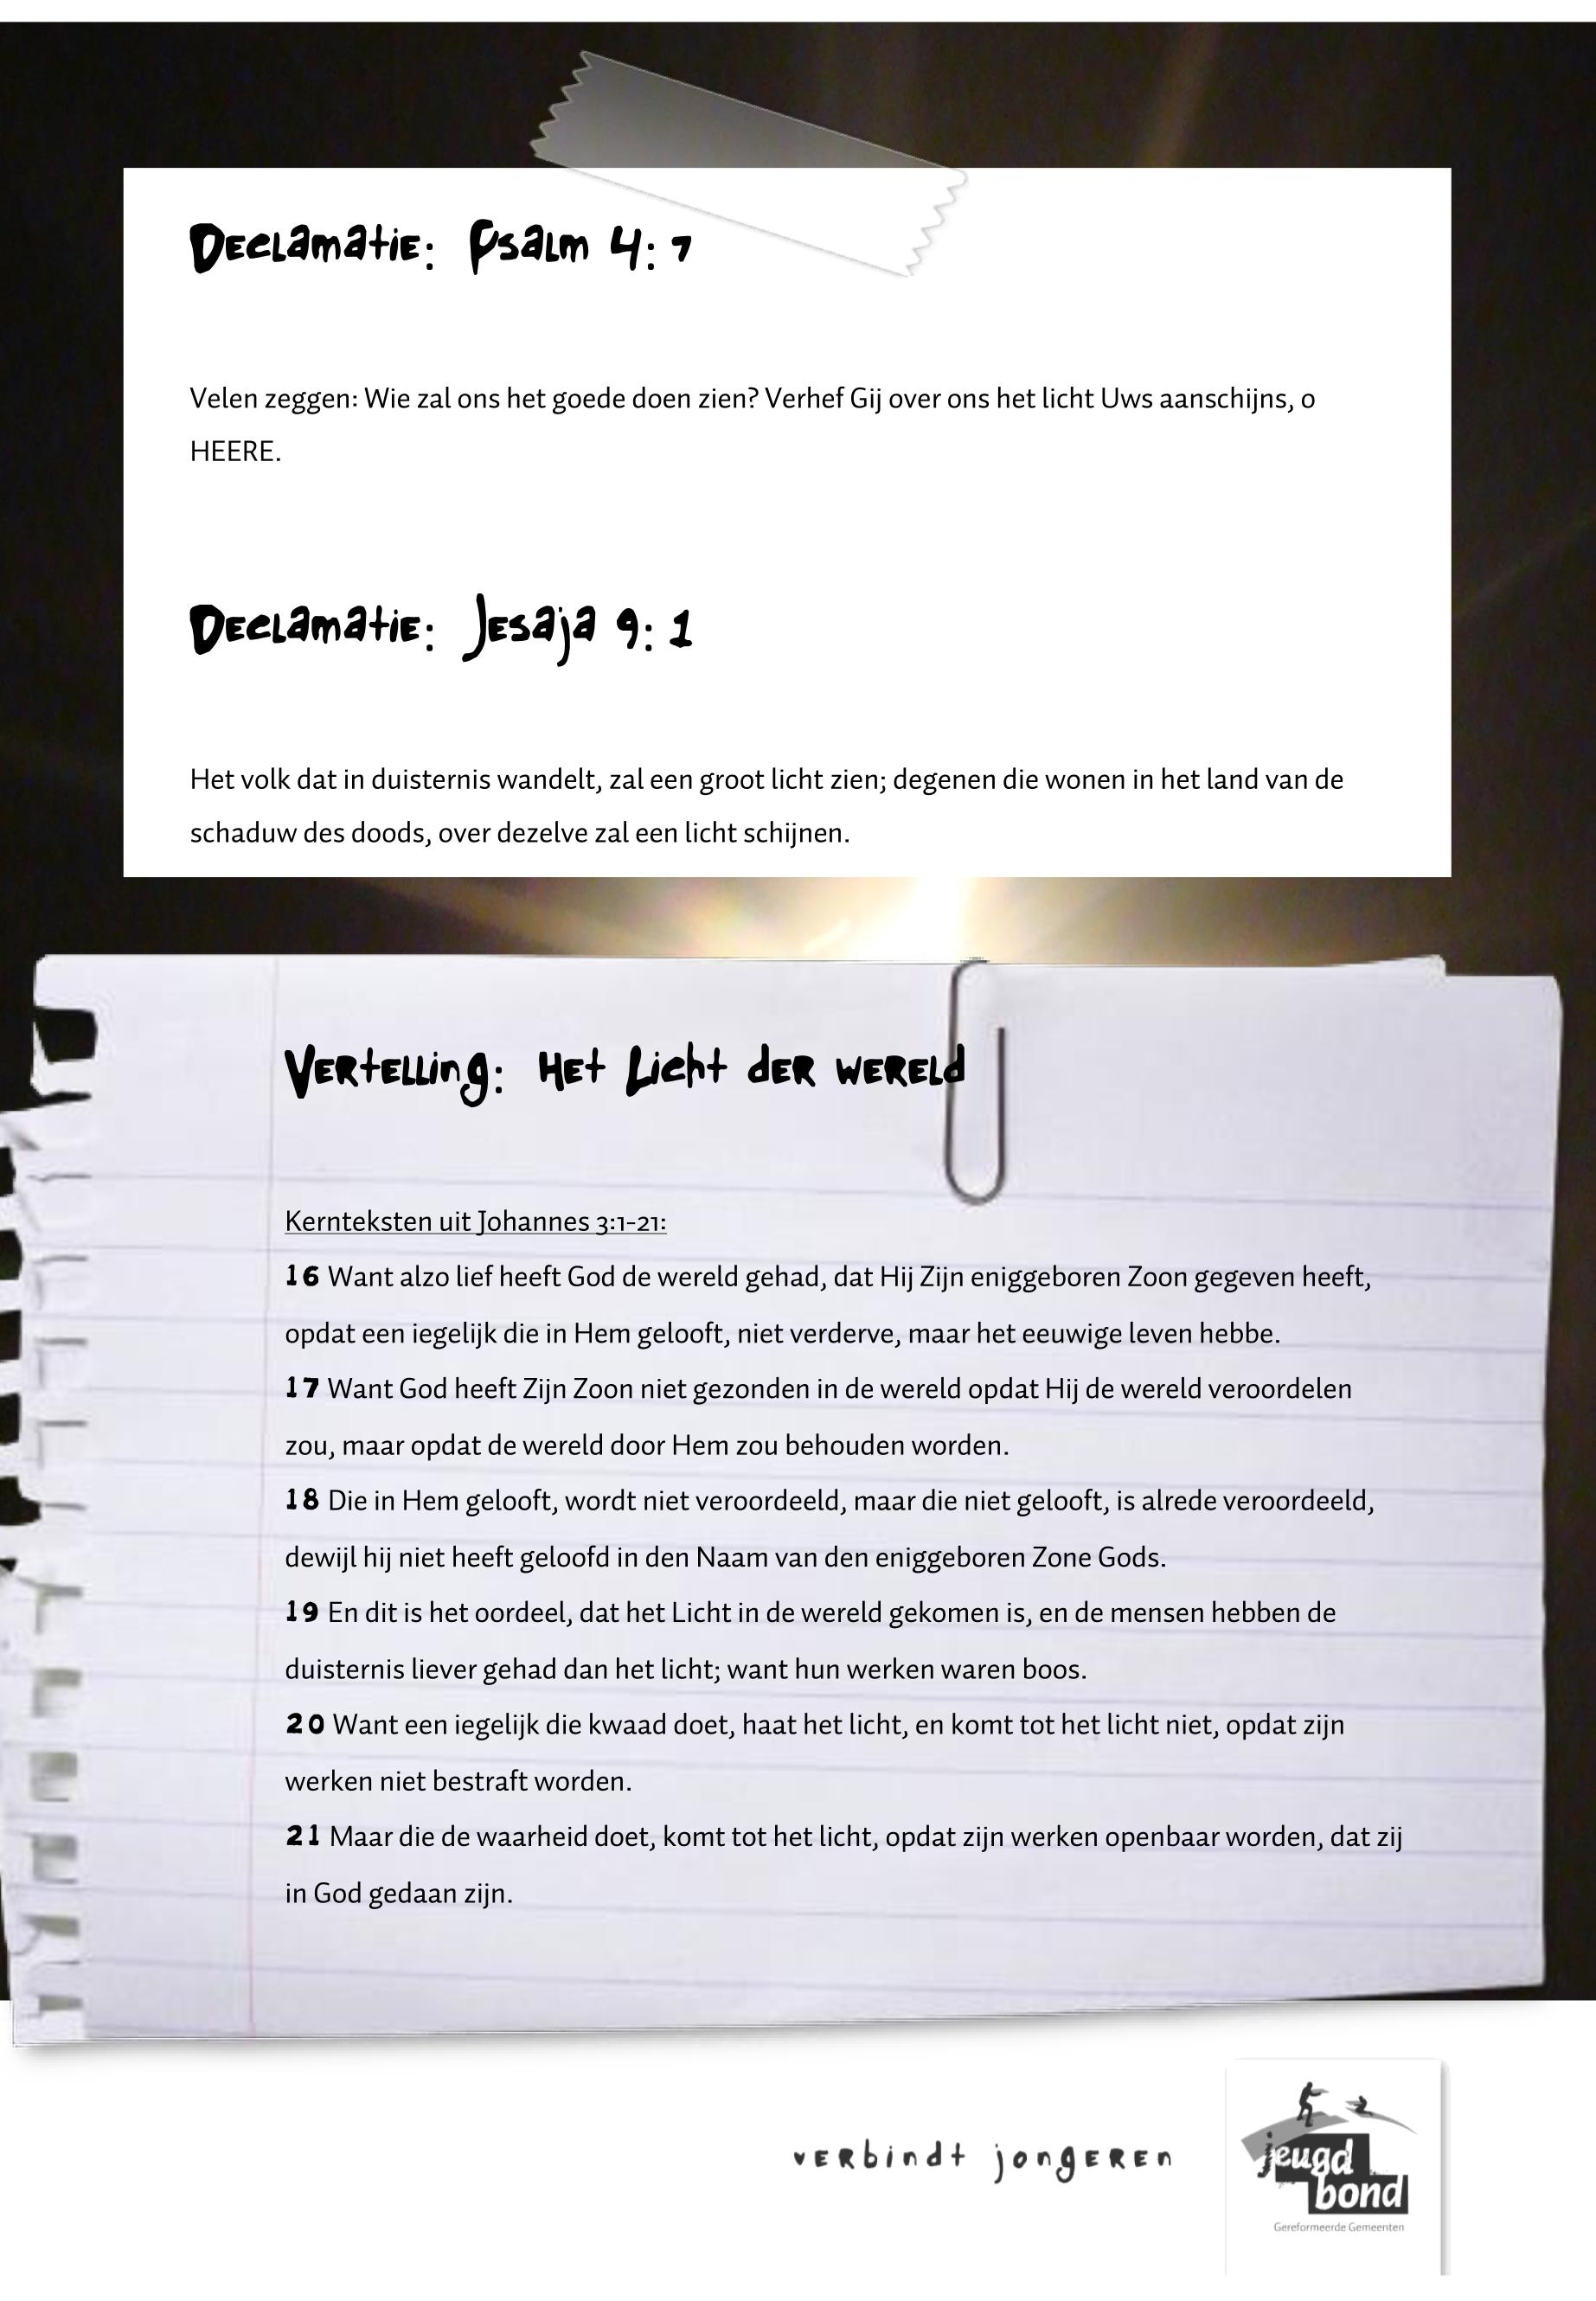 Declamatie: Psalm 4: 7
Velen zeggen: Wie zal ons het goede doen zien? Verhef Gij over ons het licht Uws aanschijns, o
HEERE.
Declamatie: Jesaja 9: 1
Het volk dat in duisternis wandelt, zal een groot licht zien; degenen die wonen in het land van de
schaduw des doods, over dezelve zal een licht schijnen.
Vertelling: Het Licht der wereld
Kernteksten uit Johannes 3:1-21:
16 Want alzo lief heeft God de wereld gehad, dat Hij Zijn eniggeboren Zoon gegeven heeft,
opdat een iegelijk die in Hem gelooft, niet verderve, maar het eeuwige leven hebbe.
17 Want God heeft Zijn Zoon niet gezonden in de wereld opdat Hij de wereld veroordelen
zou, maar opdat de wereld door Hem zou behouden worden.
18 Die in Hem gelooft, wordt niet veroordeeld, maar die niet gelooft, is alrede veroordeeld,
dewijl hij niet heeft geloofd in den Naam van den eniggeboren Zone Gods.
19 En dit is het oordeel, dat het Licht in de wereld gekomen is, en de mensen hebben de
duisternis liever gehad dan het licht; want hun werken waren boos.
20 Want een iegelijk die kwaad doet, haat het licht, en komt tot het licht niet, opdat zijn
werken niet bestraft worden.
21 Maar die de waarheid doet, komt tot het licht, opdat zijn werken openbaar worden, dat zij
in God gedaan zijn.
verbindt jongeren
jeugd
bond
Gereformeerde Gemeenten